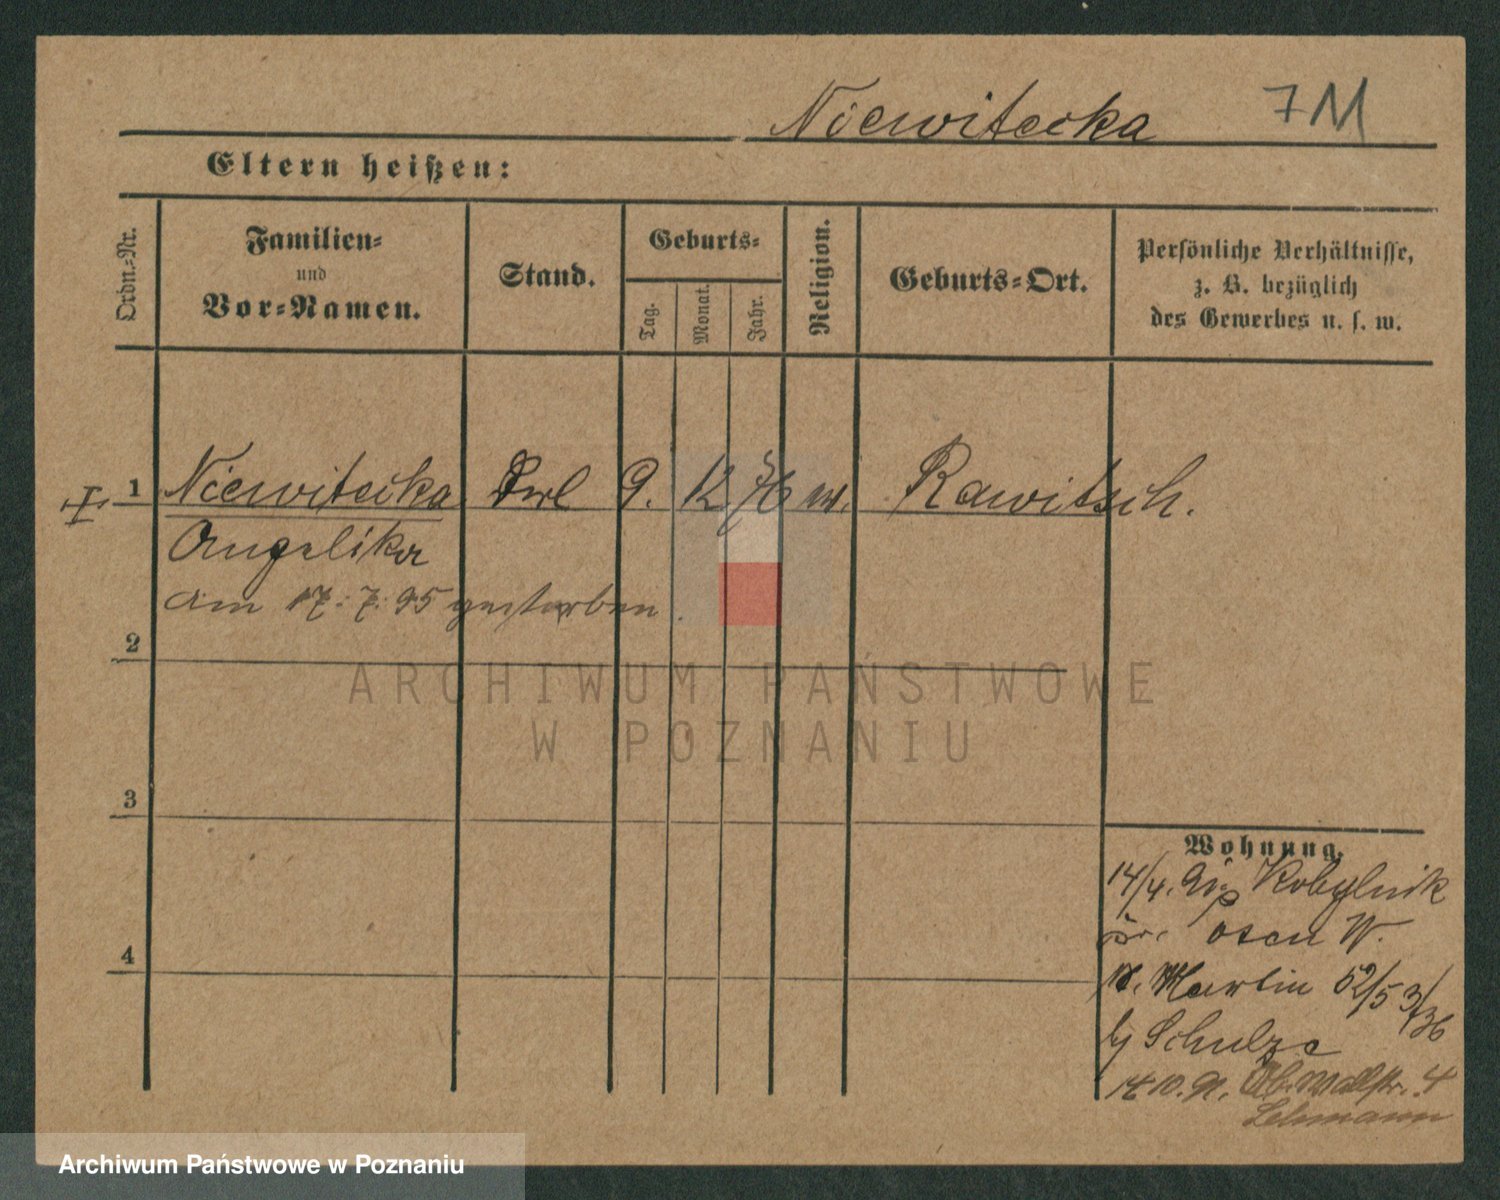 Niewitecka 7M
Eltern heißen:
Ordn.-Nr.
Familien-
und
Vor-Namen.
Stand.
Geburts-
Tag.
Monat.
Jahr.
Religion.
Geburts-Ort.
Persönliche Verhältnisse,
z. B. bezüglich
des Gewerbes u. s. w.
I 1 Niewitecka 9. 12 76 Rawitsch.
Angelika
am 17. 7. 95 gestorben.
2
3
4
Wohnung.
14/4. Kobylnik
Posen W.
Martin 52/53
Schulze
Wallstr. 4
Lehmann
ARCHIWUM PAŃSTWOWE
W POZNANIU
Archiwum Państwowe w Poznaniu